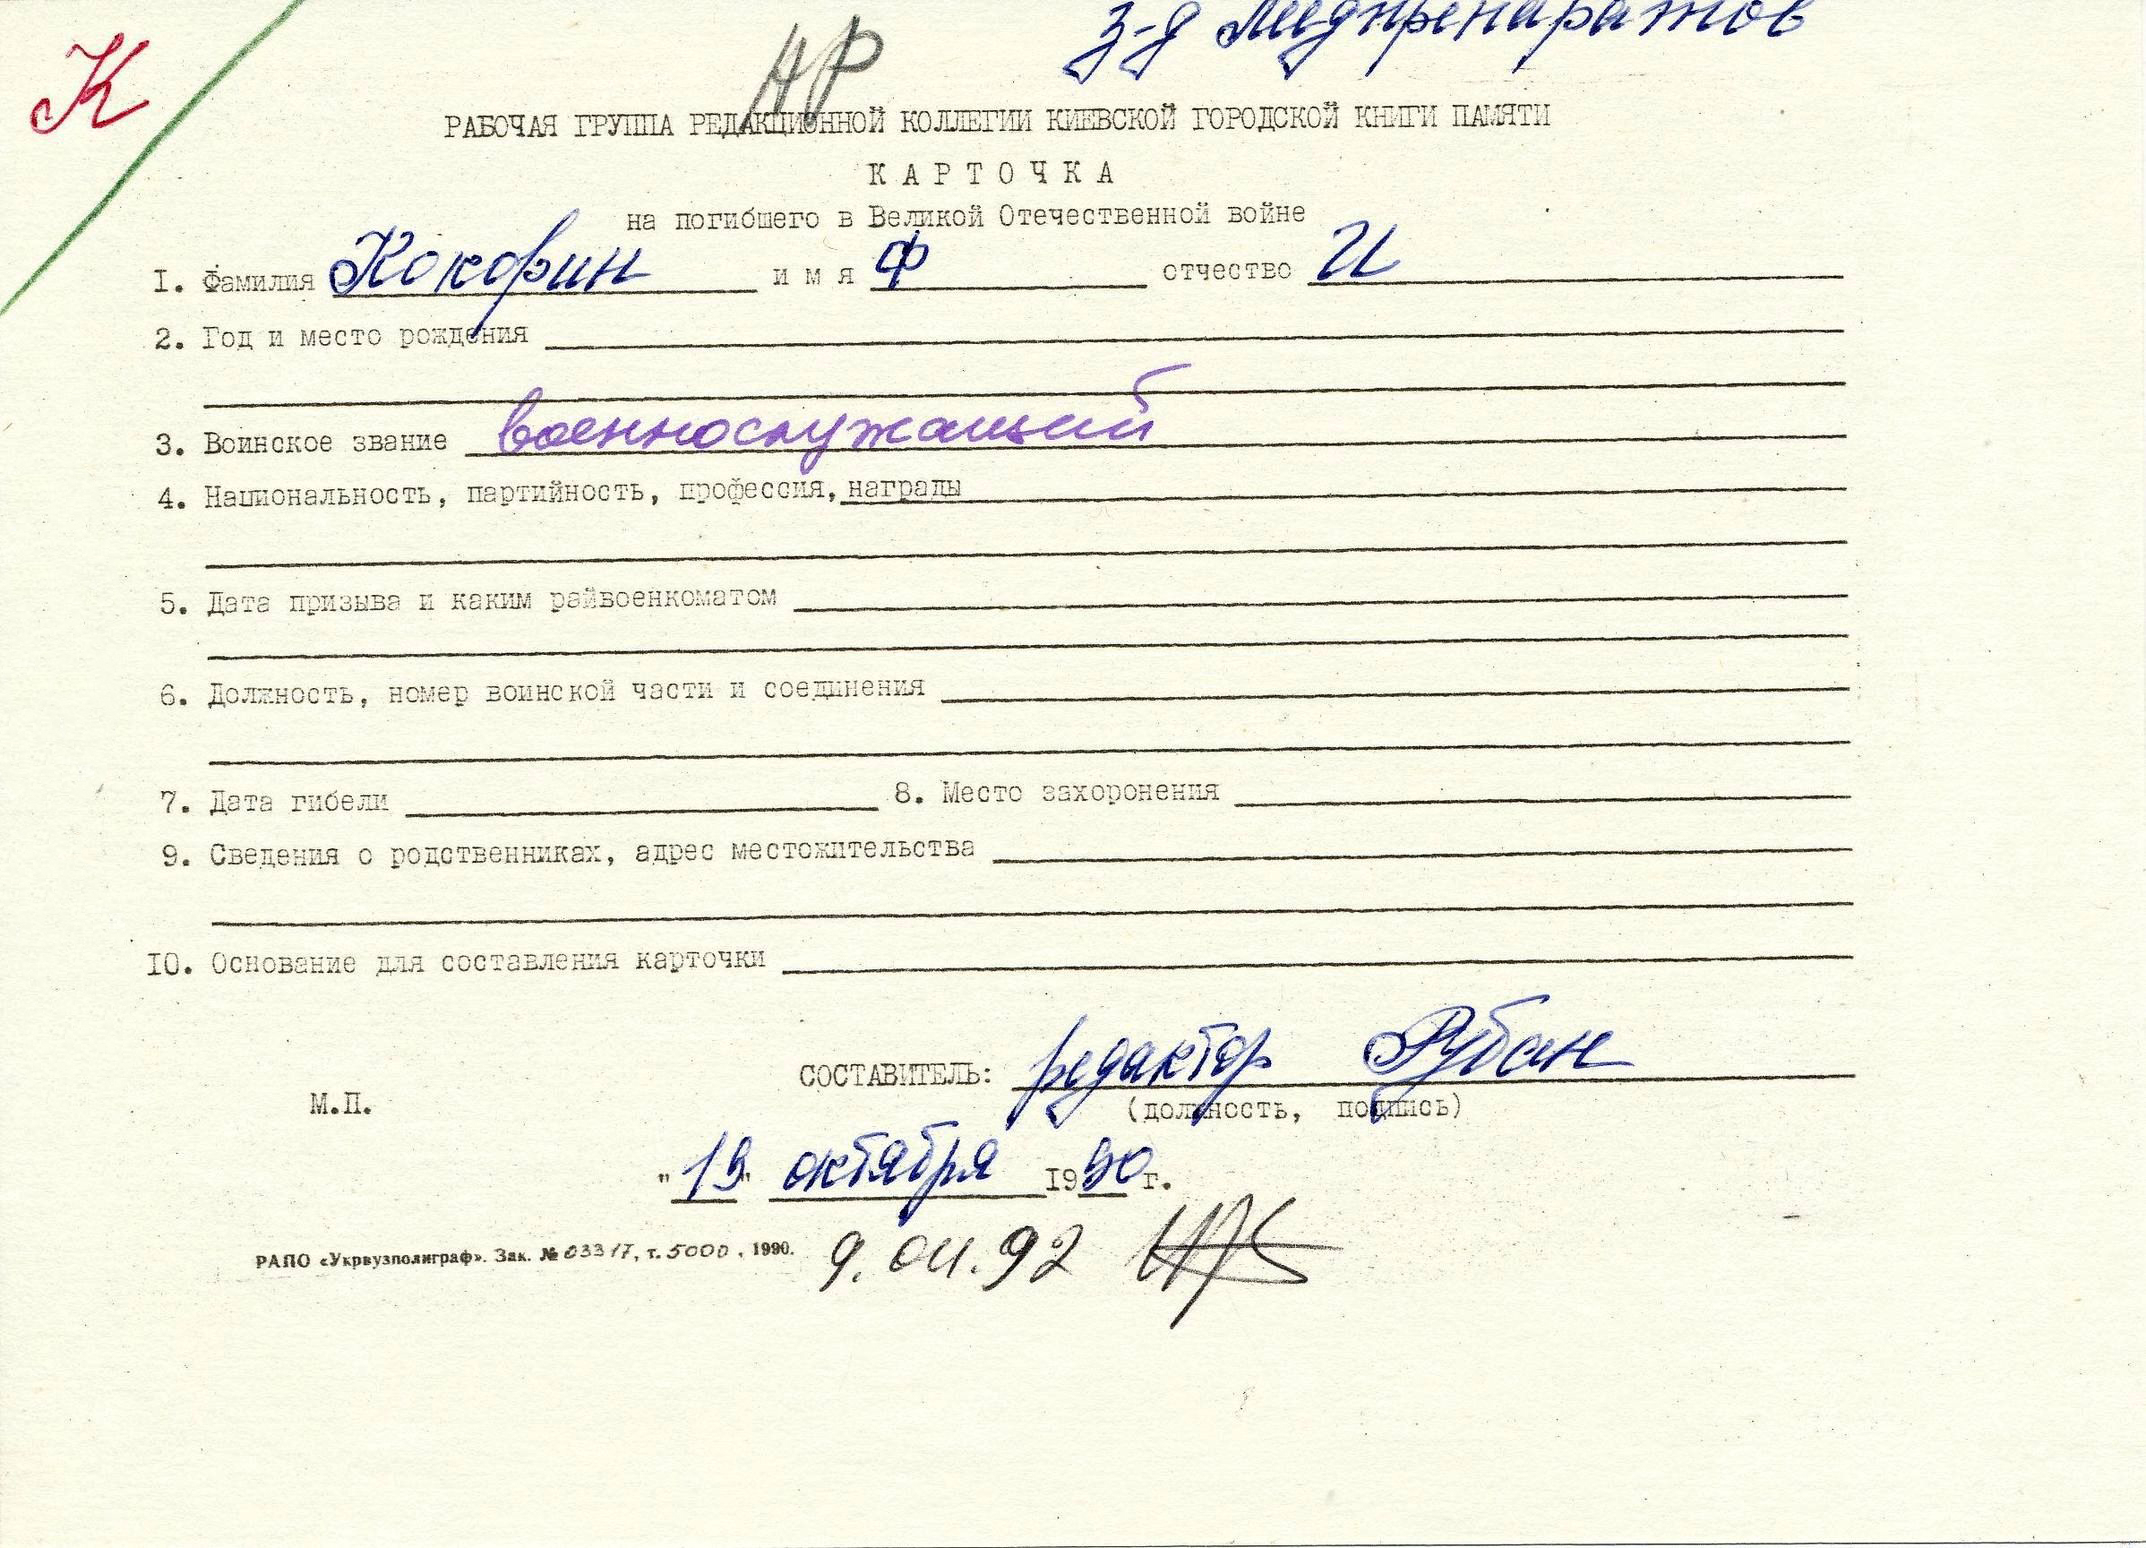 з-д Медпрепаратов
К
НР
РАБОЧАЯ ГРУППА РЕДАКЦИОННОЙ КОЛЛЕГИИ КИЕВСКОЙ ГОРОДСКОЙ КНИГИ ПАМЯТИ
КАРТОЧКА
на погибшего в Великой Отечественной войне
I. Фамилия Кокорин имя Ф отчество И
2. Год и место рождения
3. Воинское звание военнослужащий
4. Национальность, партийность, профессия, награды
5. Дата призыва и каким райвоенкоматом
6. Должность, номер воинской части и соединения
7. Дата гибели 8. Место захоронения
9. Сведения о родственниках, адрес местожительства
IO. Основание для составления карточки
СОСТАВИТЕЛЬ: редактор Рубан
М.П. (должность, подпись)
"19" октября 1990 г.
РАПО «Укрвузполиграф». Зак. № 03317, т. 5000, 1990. 9.04.92